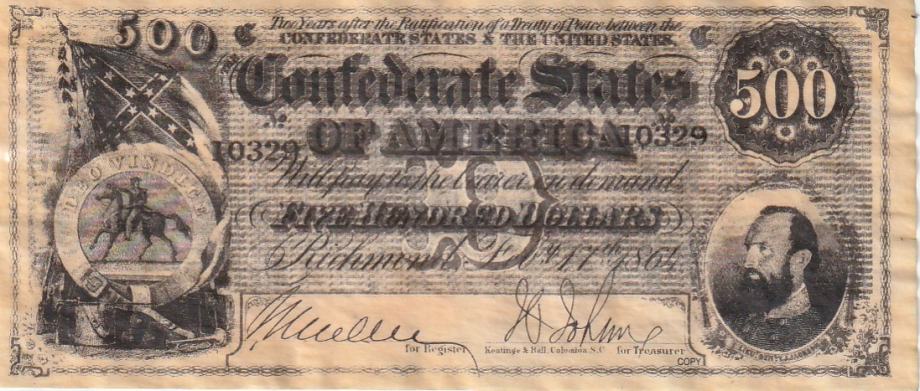 500
C Two Years after the Ratification of a Treaty of Peace between the C
CONFEDERATE STATES & THE UNITED STATES,
Confederate States
500
OF AMERICA
10329
10329
Will pay to the bearer on demand
FIVE HUNDRED DOLLARS
Richmond Feby 17th 1864
DEO VINDICE
for Register
Keatinge & Ball, Columbia S.C.
for Treasurer
COPY